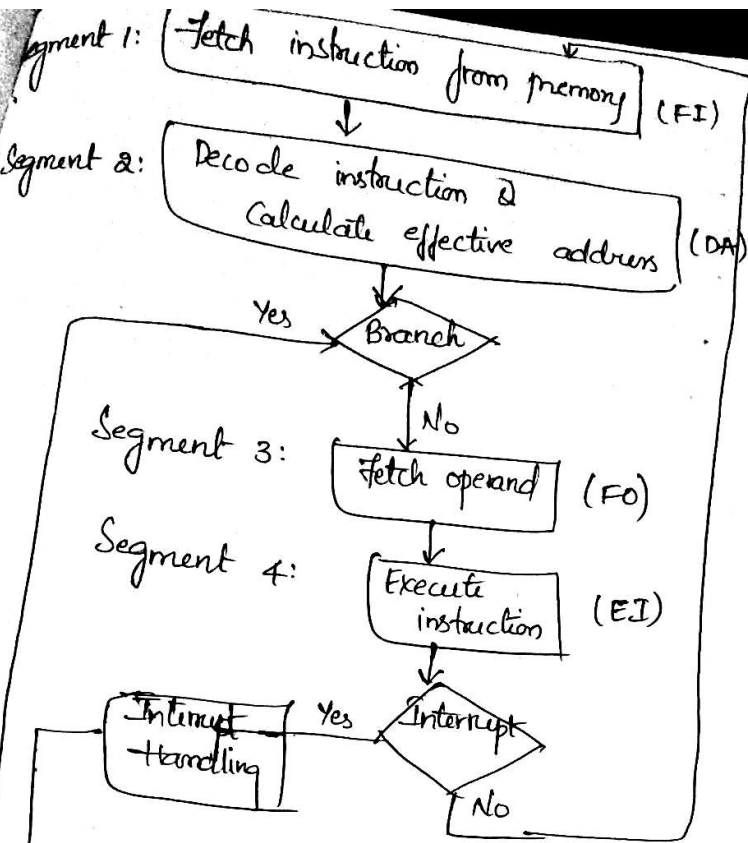 egment 1:
Fetch instruction
from memory
(FI)
Segment 2:
Decode instruction &
Calculate effective address
(DA)
Yes
Branch
No
Segment 3:
Fetch operand
(FO)
Segment 4:
Execute
instruction
(EI)
Interrupt
Handling
Yes
Interrupt
No